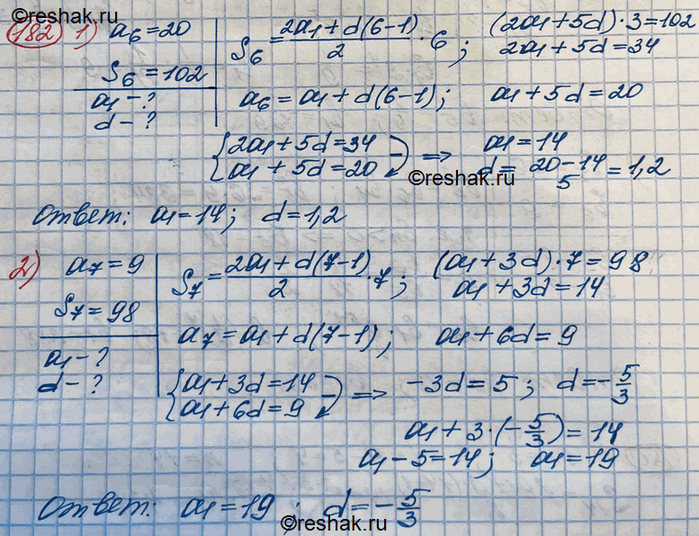 182 1) a₆ = 20
S₆ = 102
a₁ - ?
d - ?
S₆ = (2a₁ + d(6-1))/2 · 6; (2a₁ + 5d) · 3 = 102
2a₁ + 5d = 34
a₆ = a₁ + d(6-1); a₁ + 5d = 20
{2a₁ + 5d = 34
a₁ + 5d = 20 - ⇒ a₁ = 14
d = (20 - 14)/5 = 1,2
©reshak.ru
Ответ: a₁ = 14; d = 1,2
2) a₇ = 9
S₇ = 98
a₁ - ?
d - ?
S₇ = (2a₁ + d(7-1))/2 · 7; (a₁ + 3d) · 7 = 98
a₁ + 3d = 14
a₇ = a₁ + d(7-1); a₁ + 6d = 9
{a₁ + 3d = 14
a₁ + 6d = 9 - ⇒ -3d = 5; d = -5/3
a₁ + 3 · (-5/3) = 14
a₁ - 5 = 14; a₁ = 19
Ответ: a₁ = 19; d = -5/3
©reshak.ru
©reshak.ru
©reshak.ru